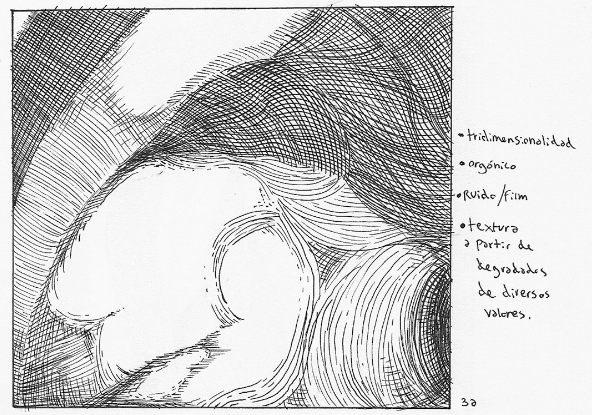 • tridimensionalidad
• orgánico
• Ruido/Film
• textura
a partir de
degradados
de diversos
valores.
32